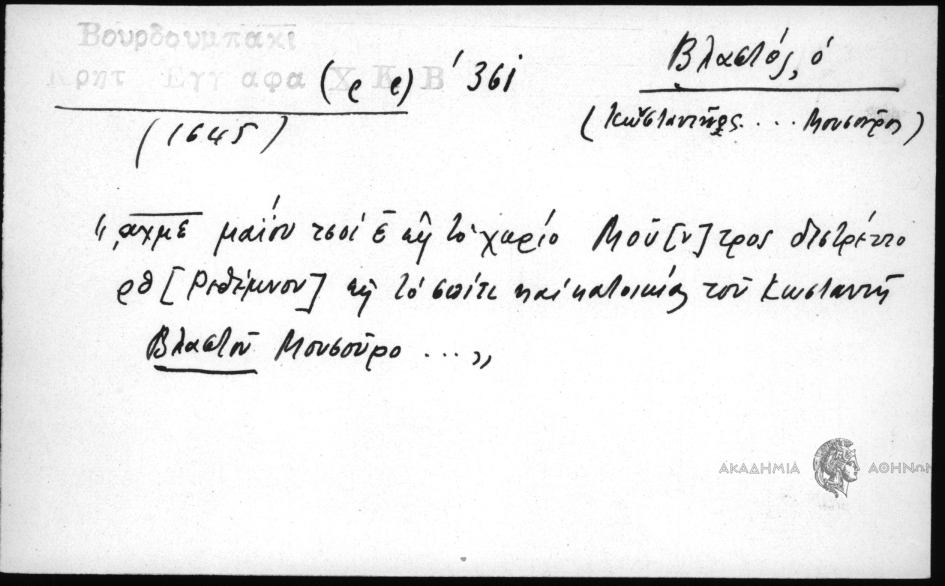 Βουρδουμπάκι
Κρητ Εγγ αφα Χ Κ Β (ρ ρ) ' 361
(1645)
Βλαστός, ὁ
(Κωσταντῆς ... Μουσοῦρος)
"͵αχμε μαΐου τσοὶ 5 εἰς τὸ χωρίο Μού[ν]τρος διστρέττο
ρθ [Ρεθέμνου] εἰς τὸ σπίτι καὶ κατοικιὰ τοῦ Κωσταντῆ
Βλαστοῦ Μουσοῦρο ..."
ΑΚΑΔΗΜΙΑ ΑΘΗΝΩΝ